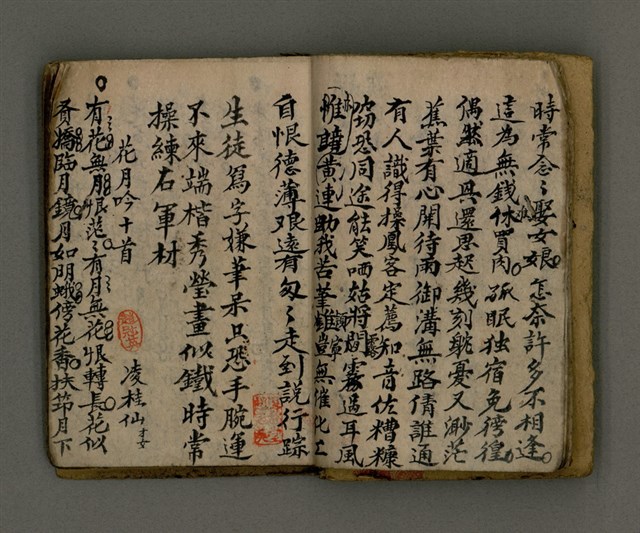 時常念〻娶女娘怎奈許多不相逢
這為無錢休買肉孤眠独宿免徬徨
偶然適興還思起幾刻躭憂又渺茫
蕉葉有心開待雨御溝無路倩誰通
有人識得操鳳客定蔦知音佐糟糠
竊恐同途能笑哂姑將閒霧過耳風
惟黃連助我苦筆難豈無催化工
自恨德薄艰遠有匆〻走到說行踪
生徒寫字嫌筆呆只恐手腕運
不來端楷秀瑩畫似鐵時常
操練右軍材
花月吟十首 凌桂仙妻
有花無月恨茫〻有月無花恨轉長花似
橋臨月鏡月如明傍花香扶筇月下